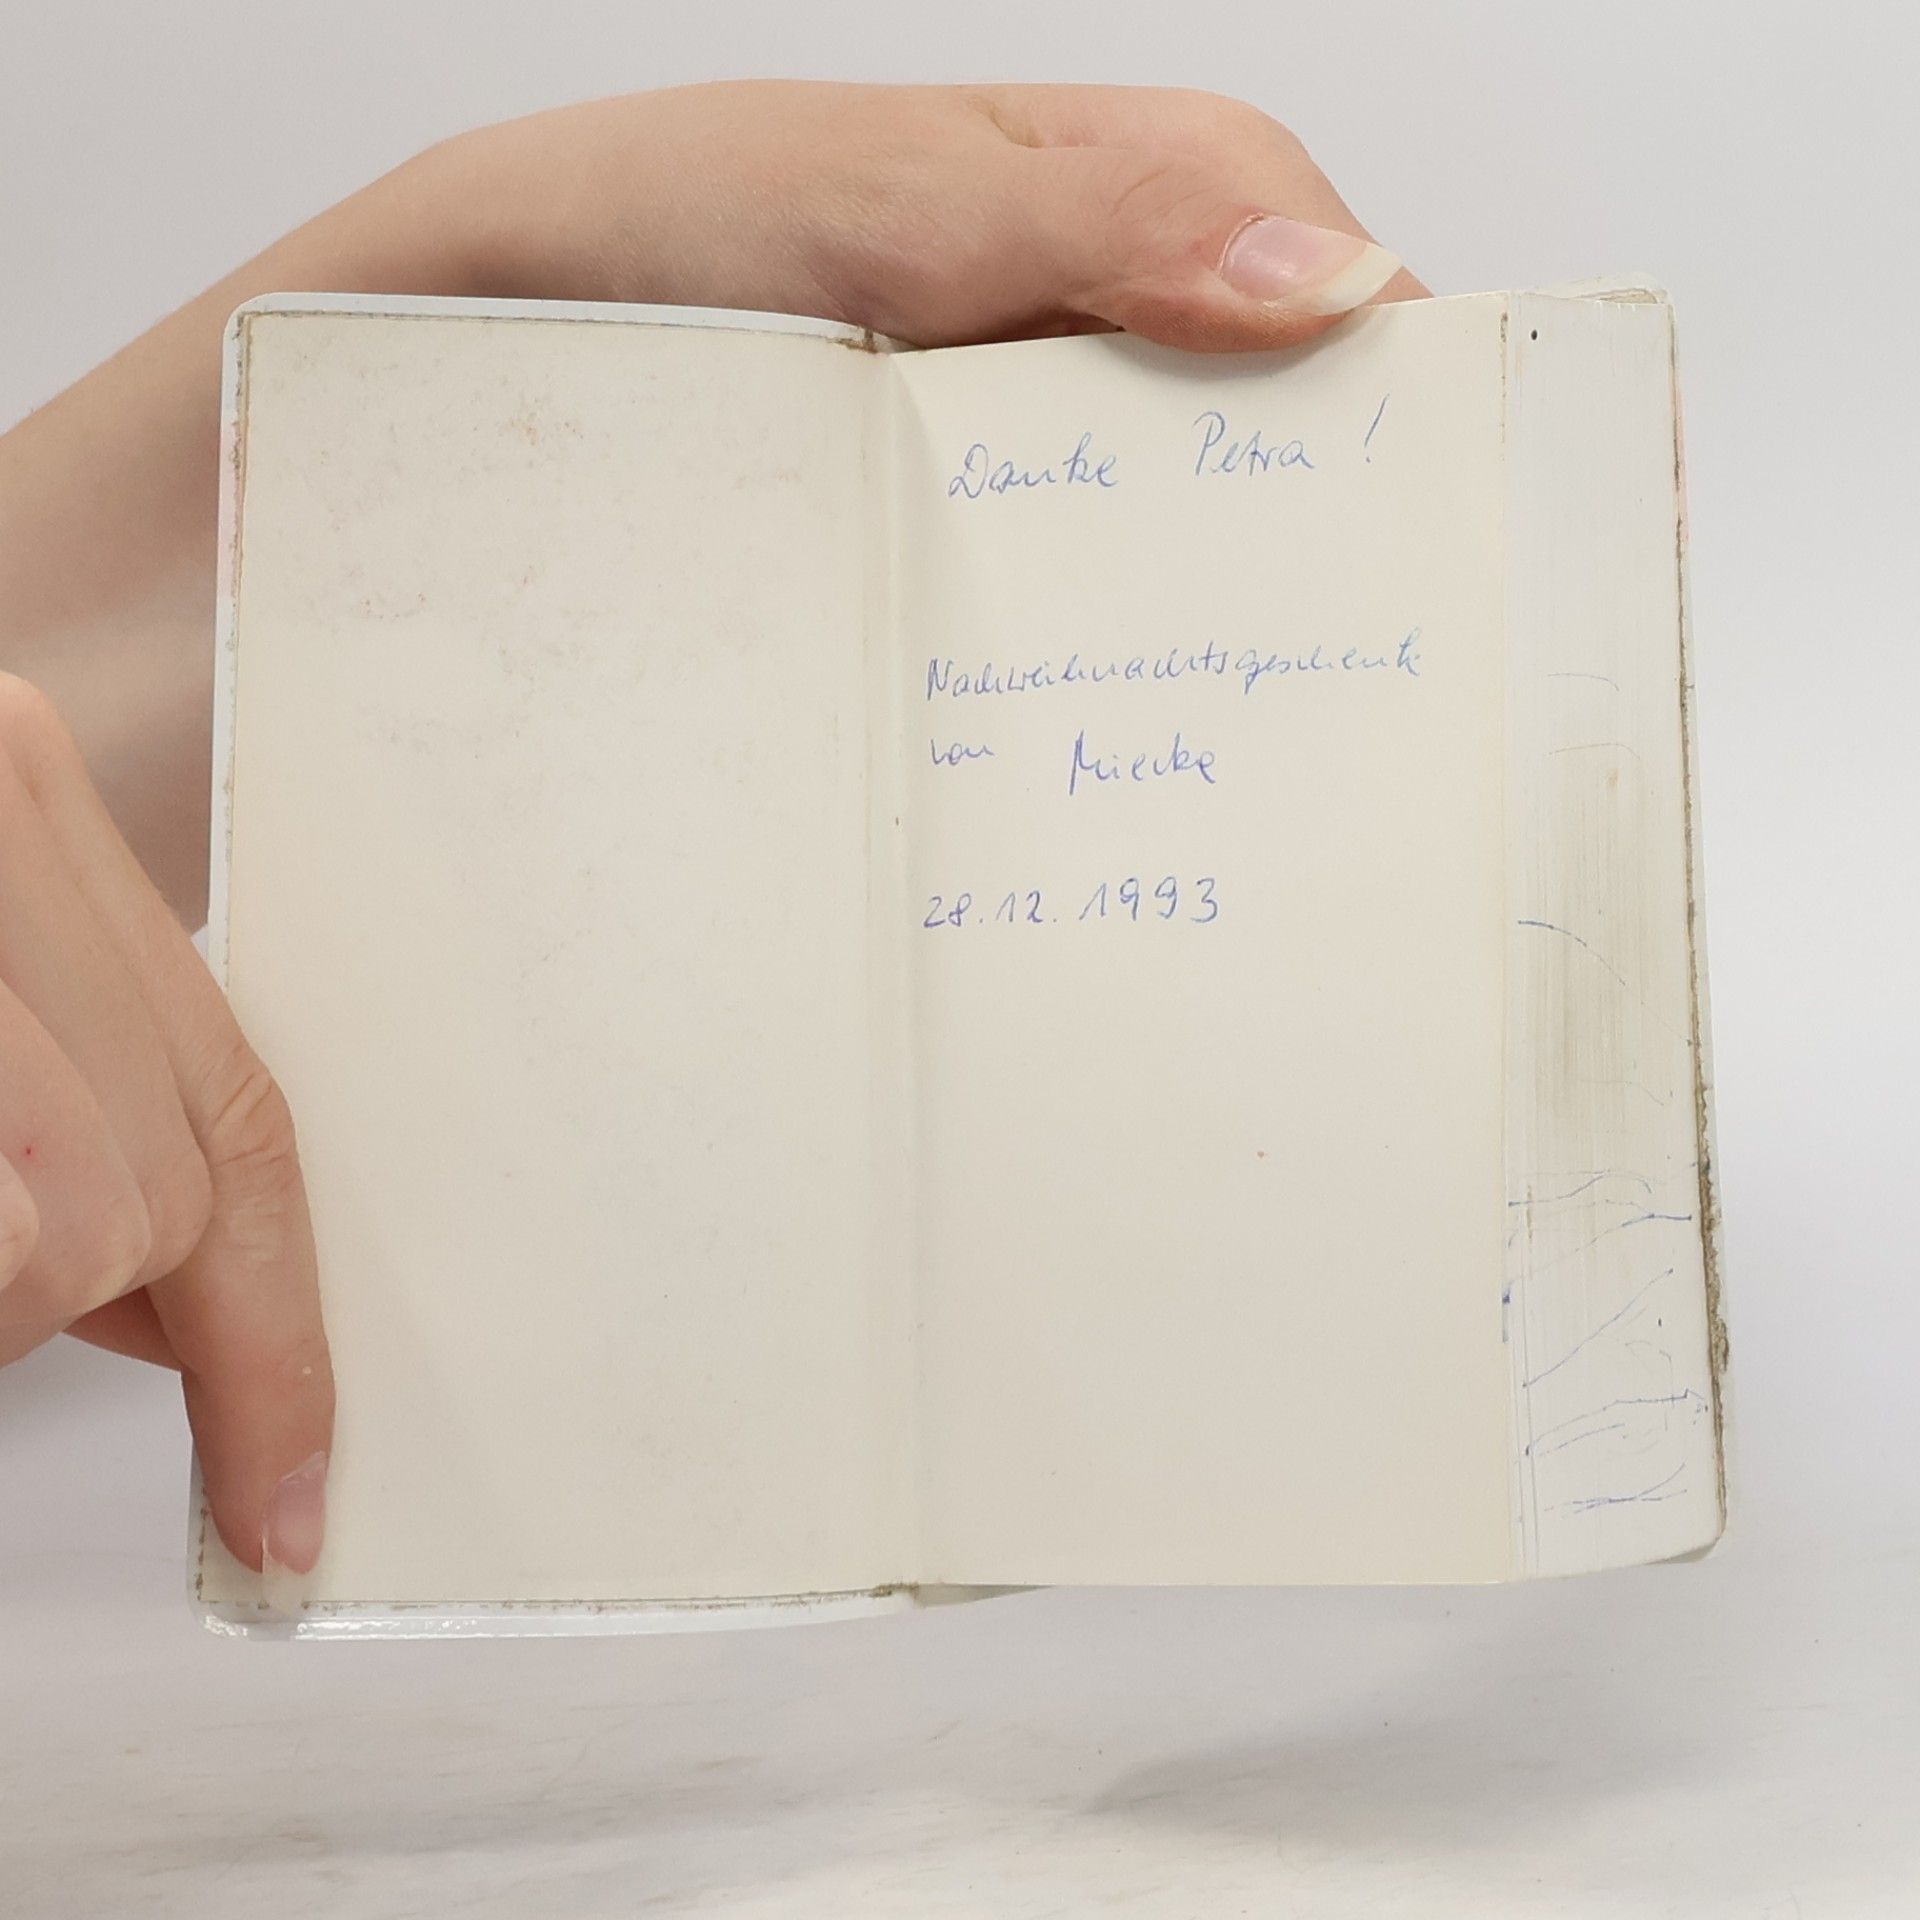 Danke Petra !
Nachweihnachtsgeschenk
von Miecke
28.12.1993